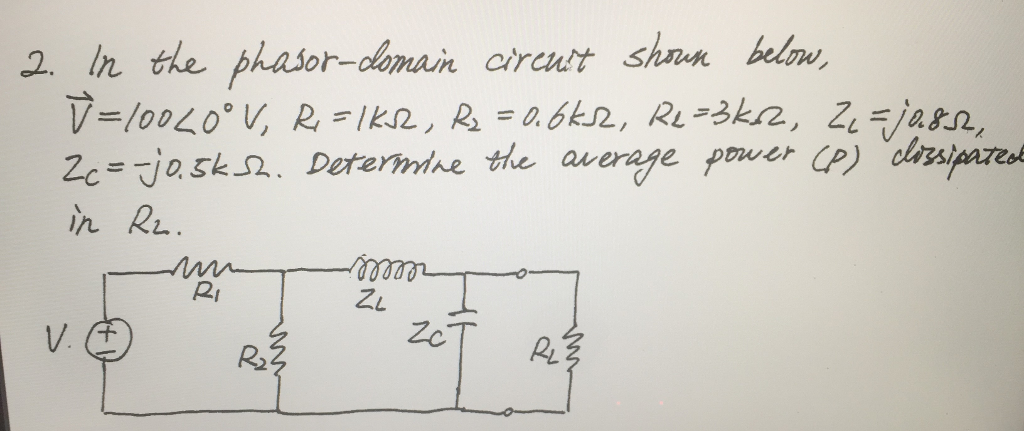 2. In the phasor-domain circuit shown below,
V⃗=100∠0° V, R₁=1kΩ, R₂=0.6kΩ, R_L=3kΩ, Z_L=j0.8Ω,
Z_C=-j0.5kΩ. Determine the average power (P) dissipated
in R_L.
R₁
Z_L
V.
+
R₂
Z_C
R_L